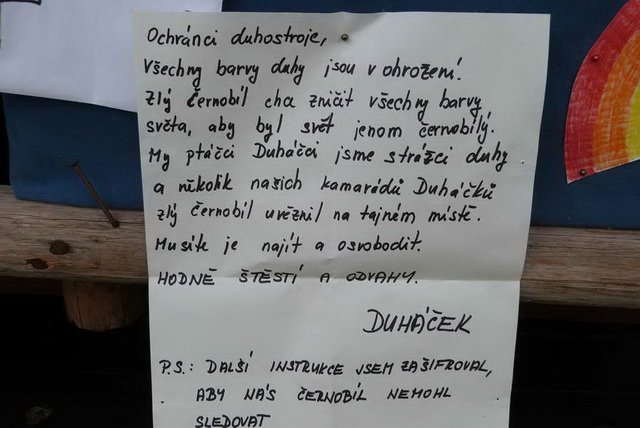 Ochránci duhostroje,
Všechny barvy duhy jsou v ohrožení.
Zlý černobíl chce zničit všechny barvy
světa, aby byl svět jenom černobílý.
My ptáčci Duháčci jsme strážci duhy
a několik našich kamarádů Duháčků
zlý černobíl uvěznil na tajném místě.
Musíte je najít a osvobodit.
HODNĚ ŠTĚSTÍ A ODVAHY.
DUHÁČEK
P.S.: DALŠÍ INSTRUKCE JSEM ZAŠIFROVAL,
ABY NÁS ČERNOBÍL NEMOHL
SLEDOVAT